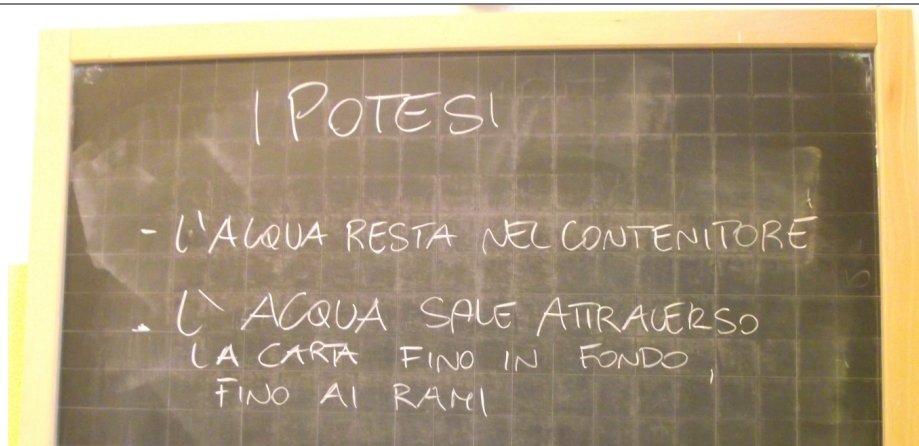 IPOTESI
- L'ACQUA RESTA NEL CONTENITORE
- L'ACQUA SALE ATTRAVERSO
LA CARTA FINO IN FONDO,
FINO AI RAMI